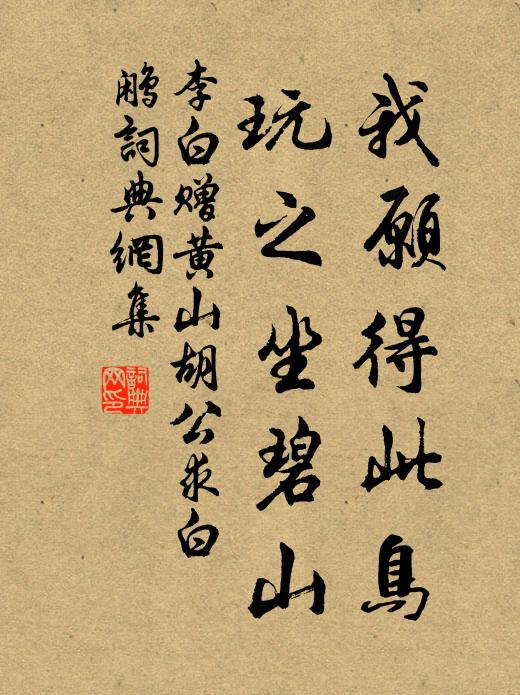 我願得此鳥
玩之坐碧山
李白贈黄山胡公求白
鷴詞典網集
詞典
网印